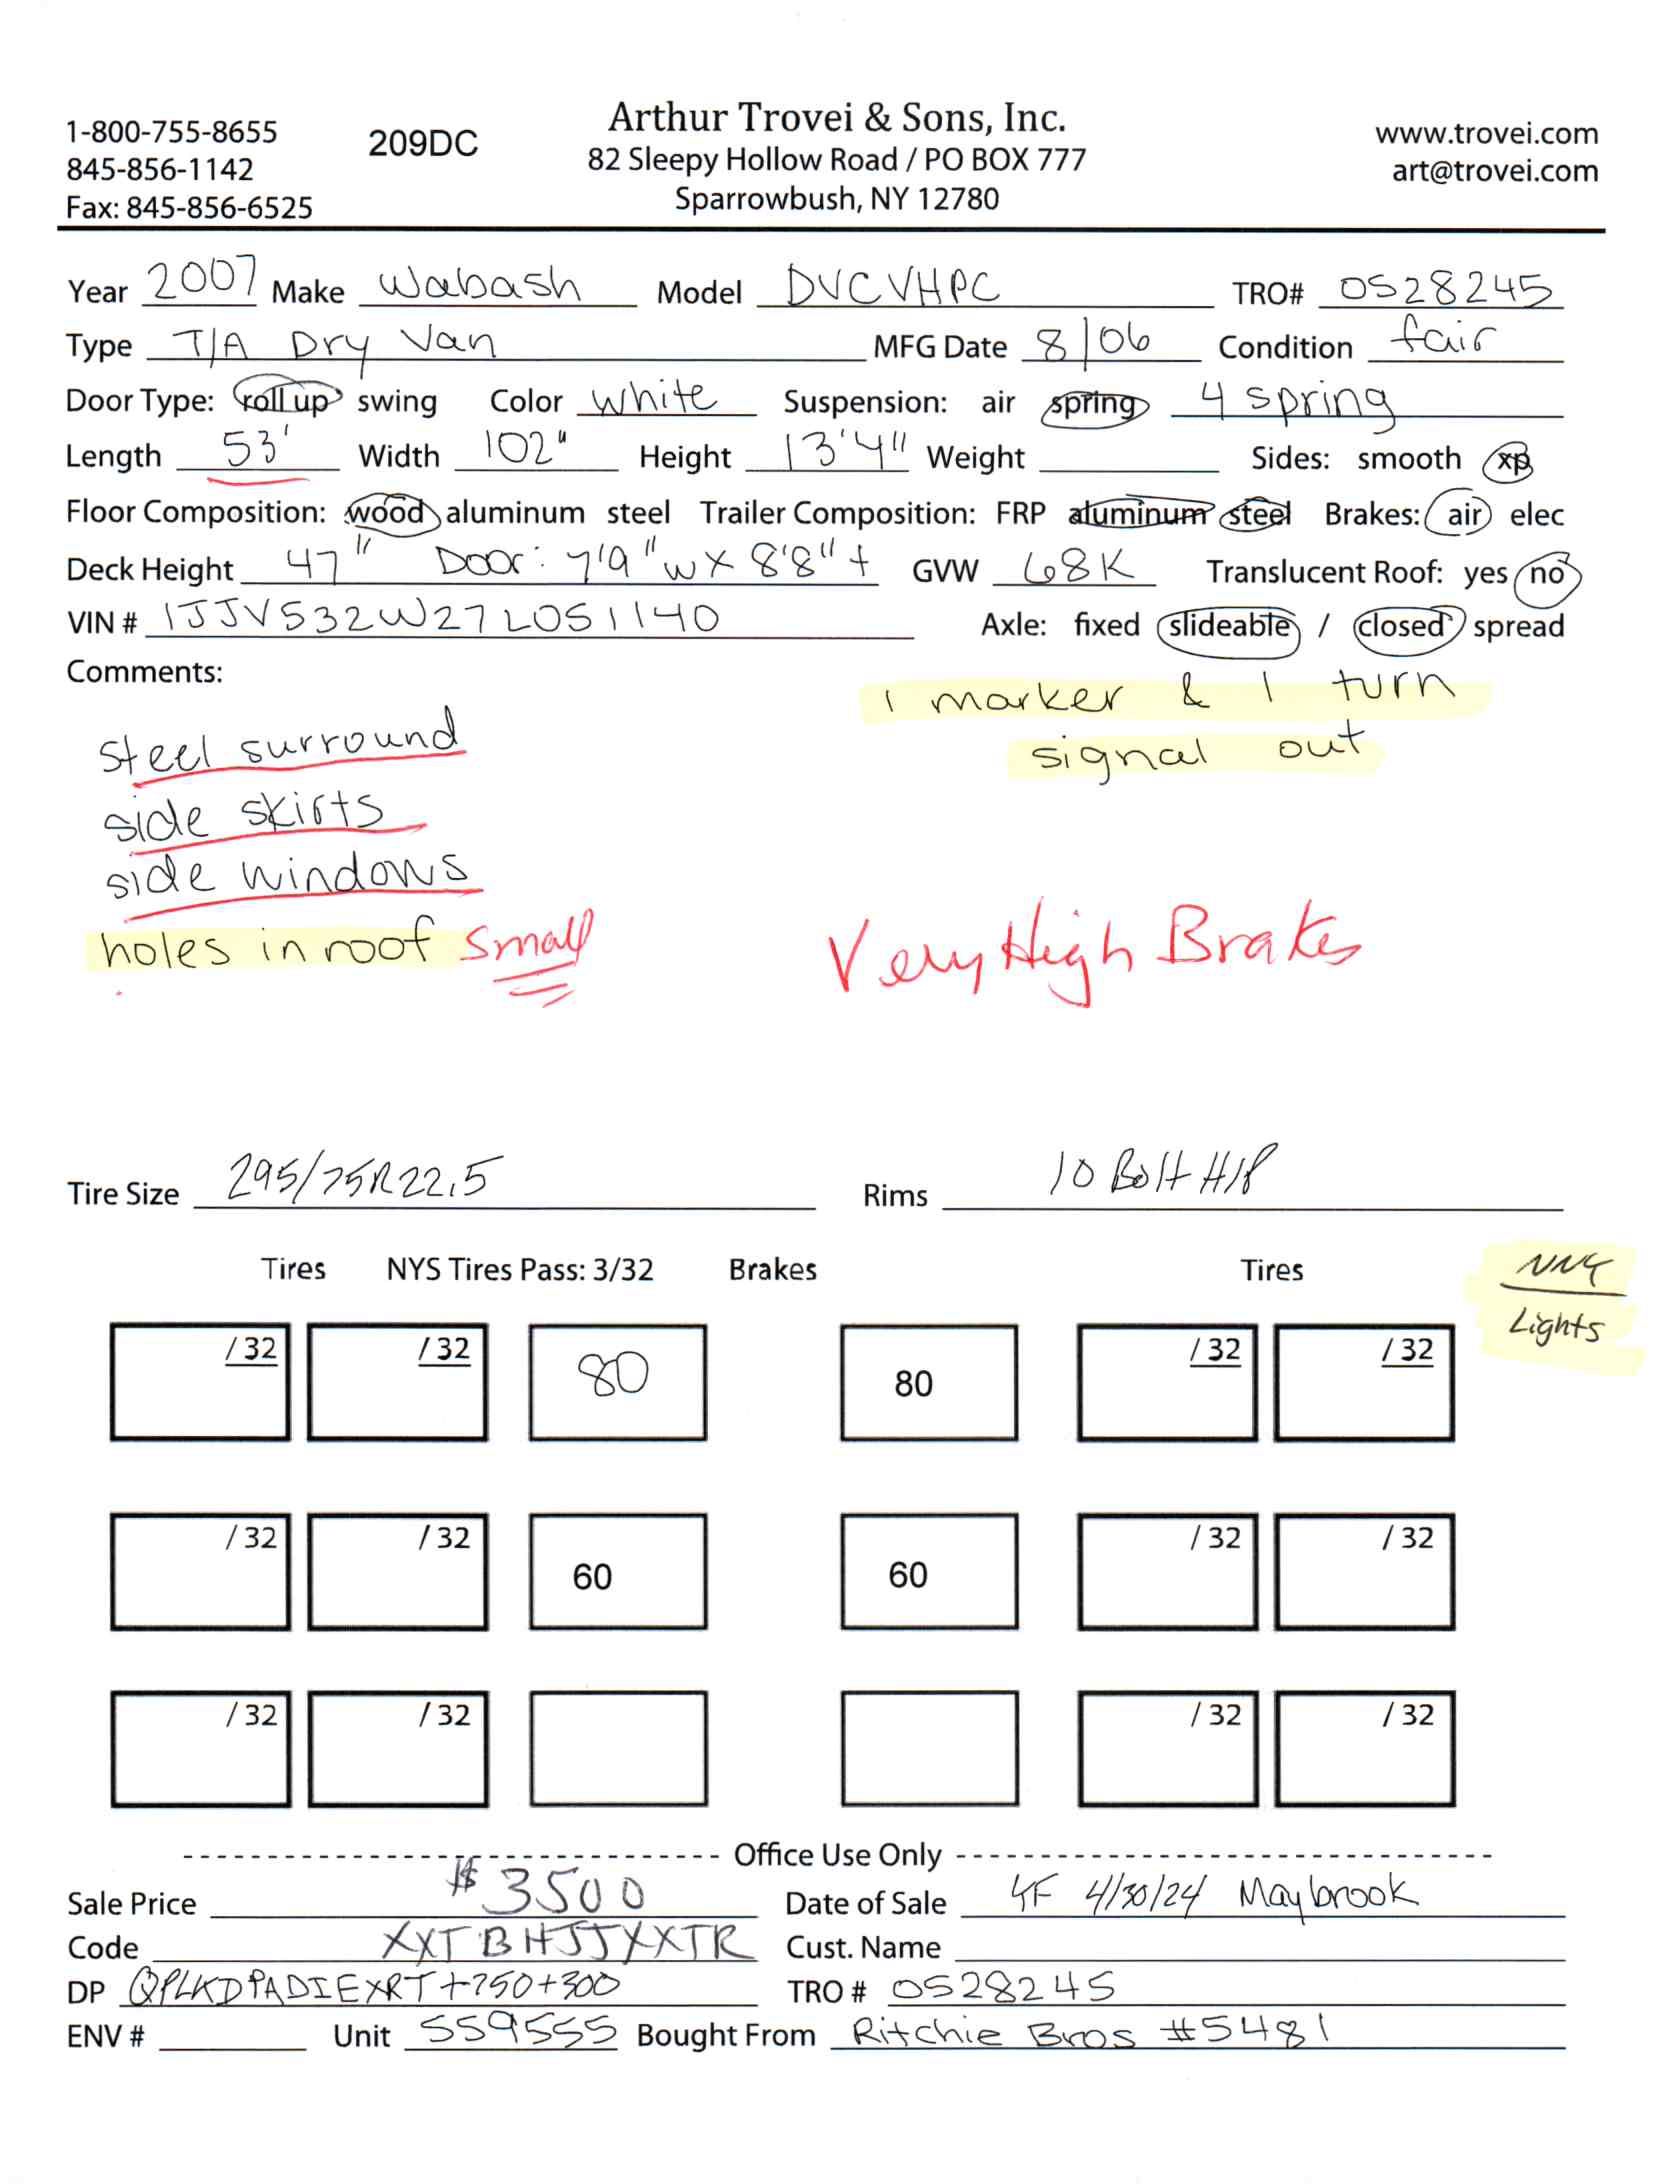 1-800-755-8655
845-856-1142
Fax: 845-856-6525
209DC
Arthur Trovei & Sons, Inc.
82 Sleepy Hollow Road / PO BOX 777
Sparrowbush, NY 12780
www.trovei.com
art@trovei.com
Year 2007 Make Wabash Model DVCVHPC TRO# 0528245
Type T/A Dry Van MFG Date 8/06 Condition fair
Door Type: roll up swing Color white Suspension: air spring 4 spring
Length 53' Width 102" Height 13'4" Weight Sides: smooth xp
Floor Composition: wood aluminum steel Trailer Composition: FRP aluminum steel Brakes: air elec
Deck Height 47" Door: 7'9"w x 8'8"t GVW 68K Translucent Roof: yes no
VIN # 1JJV532W27L051140 Axle: fixed slideable / closed spread
Comments:
1 marker & 1 turn
signal out
steel surround
side skirts
side windows
holes in roof small
Very High Brakes
Tire Size 295/75R22.5 Rims 10 Bolt H/P
Tires NYS Tires Pass: 3/32 Brakes Tires
Lights
/ 32 / 32 80 80 / 32 / 32
/ 32 / 32 60 60 / 32 / 32
/ 32 / 32 / 32 / 32
Office Use Only
Sale Price $3500 Date of Sale 4/30/24 Maybrook
Code XXTBHJJYXXTR Cust. Name
DP QPLKDPADIEXRT+750+300 TRO # 0528245
ENV # Unit 559555 Bought From Ritchie Bros #5481